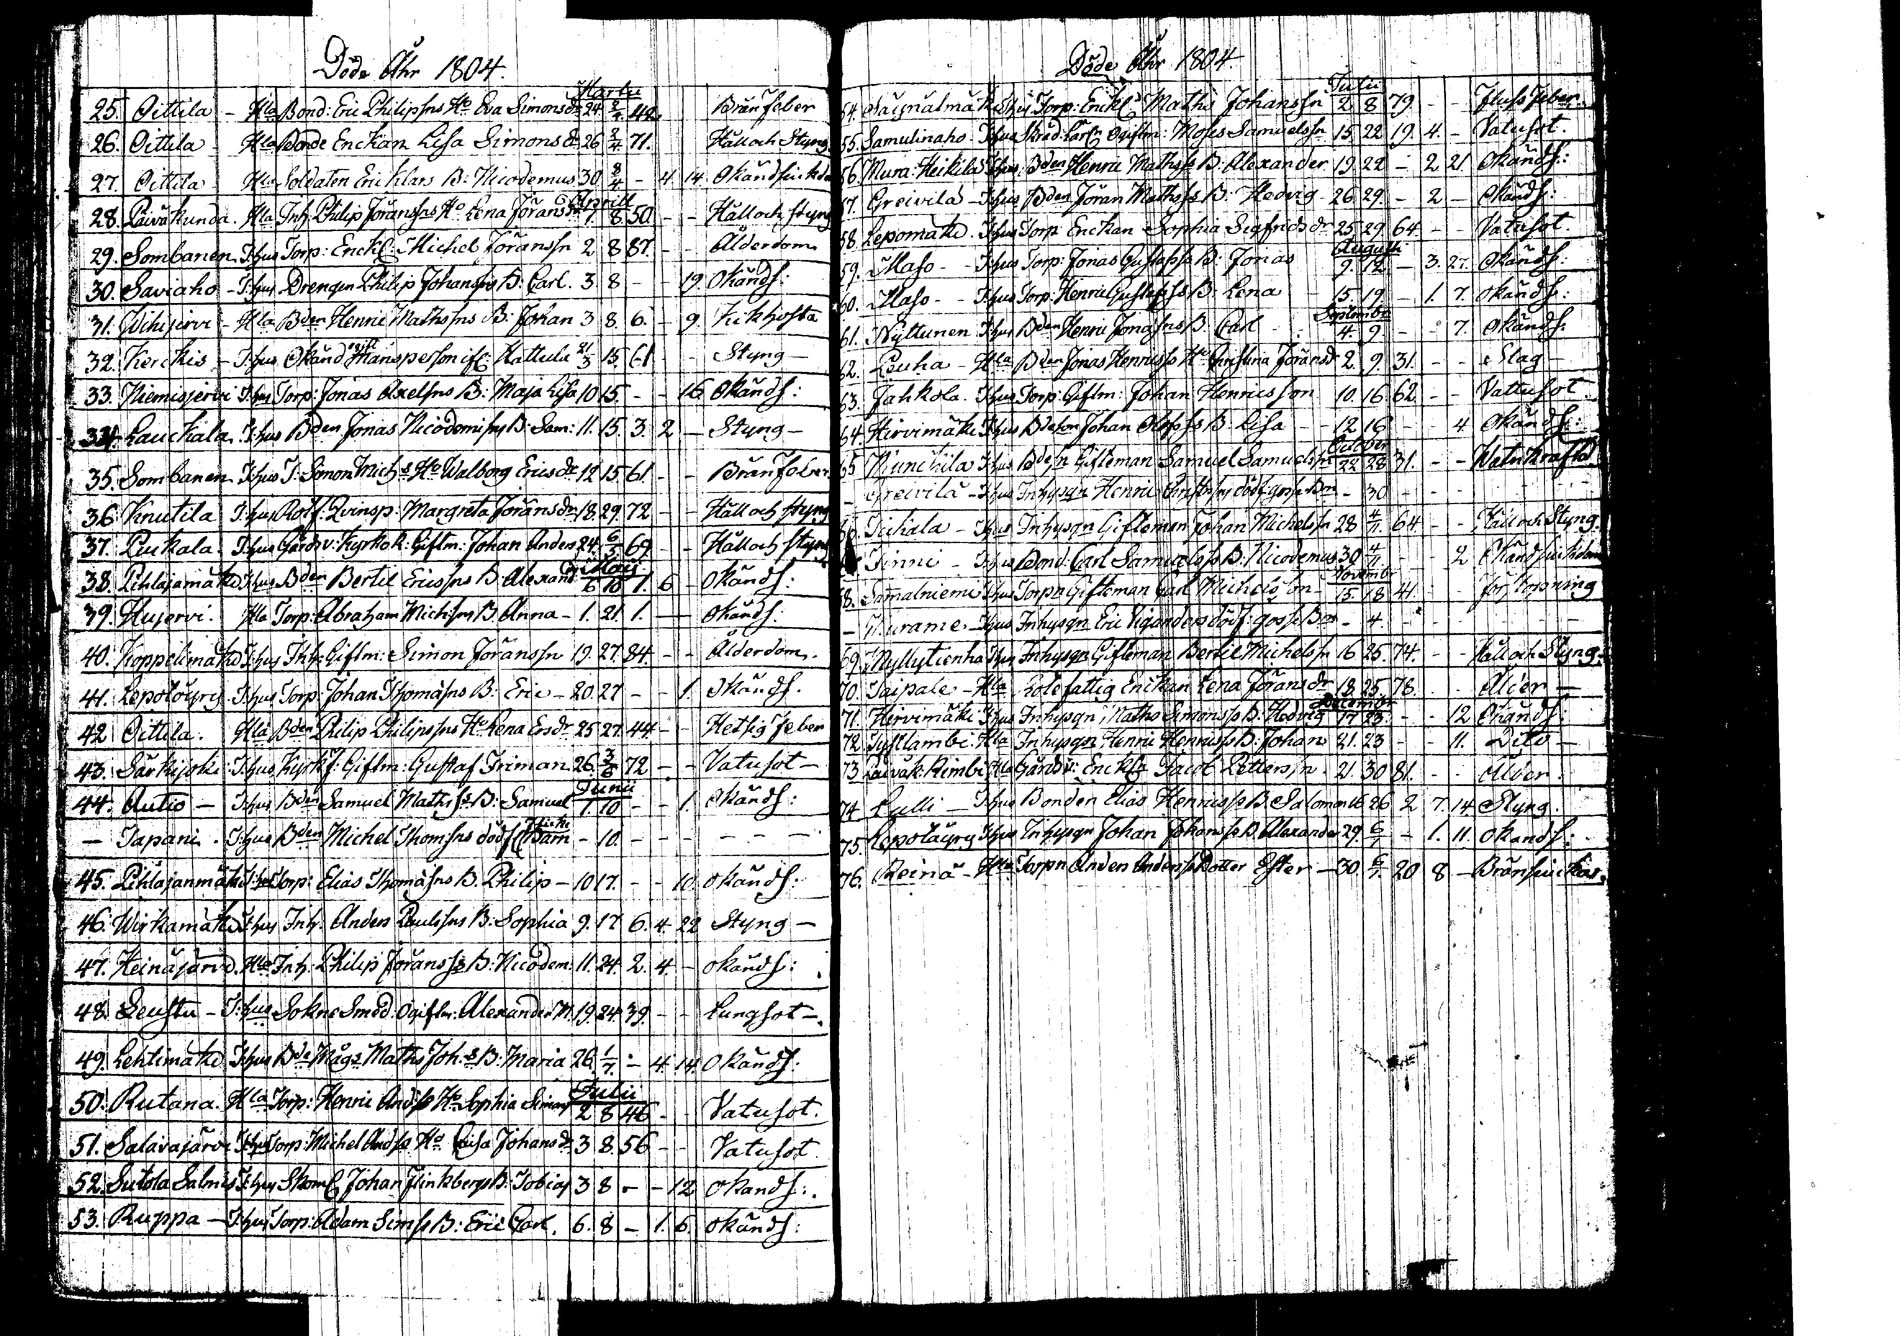 Döde Åhr 1804.
Martii
25. Oittila - Hla Bond: Eric Philipsns Ho Eva Simonsdr 24. 2/4 42. Bränfeber
26. Oittila - Hla Bonde Enckan Lisa Simonsdr 26 2/4 71. Håll och Styng
27. Oittila - Hla Soldaten Eric Klars B: Nicodemus 30 8/4 - 4 14. Okänd
Aprill
28. Päiväkunda. Hla Inh: Philip Jöransns Ho Lena Jöransdr 7. 8. 50 - - Håll och styng
29. Sombanen I:hus Torp: Enckl: Michel Jöransn 2 8 87. - - Ålderdom
30. Saviaho - I:hus Drengen Philip Johansns B: Carl. 3 8 - - 19. OkändS:
31. Wihijervi - Hla Bden Henric Mathsns B: Johan 3 8 6. - 9 Kikhosta
32. Kerckis - I:hus Okänd Mansperson ifr. Kattula 21/3 15 61 - - Styng -
33. Niemisjervi I:hus Torp: Jonas Axelsns B: Maja Lisa 10 15. - - 16 OkändS:
34. Lauckala. I:hus Bden Jonas Nicodemisns B: Sam: 11. 15. 3. 2 - Styng -
35. Sombanen I:hus T: Simon Mich:s Ho Walborg Ericsdr 12 15 61 - - Bränfeber
36. Knutila I:hus Rotf: Qvinsp: Margreta Jöransdr 18. 29. 72 - - Håll och styng
37. Puckala. I:hus Gårdsv: Kyrkok: Giftm: Johan Anders 24. 6/5 69. - - Håll och styng
Maij
38. Pihlajamäki I:hus Bden Bertil Ericsns B: Alexand: 6 10 1. 6 - OkändS:
39. Hujervi. Hla Torp: Abraham Michsns B: Anna - 1. 21. 1. - OkändS.
40. Koppelimäki I:hus Inh: Giftm: Simon Jöransn 19. 27. 84. - - Ålderdom.
41. Lepolöyry I:hus Torp: Johan Thomasns B: Eric - 20. 27 - - 1. OkändS.
42. Oittila. Hla Bden Philip Philipsns Ho Lena Ersdr 25 27. 44 - - Hetsig feber
43. Särkijoki I:hus Kyrkf: Giftm: Gustaf Friman 26. 3/6 72 - - Vatusot -
Junii
44. Autio - I:hus Bden Samuel Mathss B: Samuel 1. 10 - - 1. OkändS:
- Tapani. I:hus Bden Michel Thomsns dödf: Barn - 10. - - - -
45. Pihlajanmäki I:hus Torp: Elias Thomasns B. Philip - 10 17. - - 10. okändS:
46. Wirkamäki I:hus Inh: Anders Paulsns B: Sophia 9. 17. 6. 4. 22 Styng -
47. Heinäjärvi. Hla Inh: Philip Jöranss B: Nicodem: 11. 24. 2. 4. - okändS:
48. Leustu - I:hus Sokne Smed: Ogiftm: Alexander M. 19. 24. 39. - - Lungsot -
49. Lehtimäki I:hus Bde Mågs Maths Joh:s B: Maria 26. 1/7 - 4. 14. OkändS:
Julii
50. Rutana. Hla Torp: Henric Andss Ho Sophia Simons 2 8 46 - - Vatusot.
51. Salavajärvi I:hus Torp: Michel Andss Ho Caisa Johansdr 3 8. 56 - - Vatusot
52. Sutola Salmis I:hus Johan Flinkbergs B: Tobias 3 8 - - 12 OkandS:
53. Ruppa - I:hus Torp: Adam Simss B: Eric Carl. 6. 8 - 1. 6. okändS:
Döde Åhr 1804
Julii
54. I:hus Torp: Enckl: Maths Johansn 2 8 79. - - Fluss feber.
55. Samulinaho - I:hus Ogiftm: Moses Samuelsn 15 22 19. 4. - Vatusot.
56. Mura Heikilä I:hus Bden Henric Mathss B: Alexander 19 22 - 2 21 OkändS:
57. Greivilä - I:hus Bden Jöran Mathss B: Hedvig 26 29. - 2 - OkändS:
58. Lepomäki. I:hus Torp Enckan Sophia Sigfridsdr 25 29 64. - - Vatusot
Augusti
59. Maso - I:hus Torp: Jonas Gustafss B: Jonas 9. 12. - 3. 27. OkändS:
60. Maso - I:hus Torp: Henric Gustafss B: Lena 15 19. - 1. 7. okändS:
September
61. Nyttunen I:hus Bden Henric Jonasns B: Carl 4. 9. - 7. okändS:
62. Leuha - Hla Bden Jonas Henricss Ho Christina Jöransdr 2. 9. 31. - - Slag -
63. Jahkola. I:hus Torp: Giftm: Johan Henricsson 10. 16. 62. - - Vattusot
64. Hirvimäki I:hus Bdeson Johan Olofss B: Lisa - 12 16 - - 4 OkändS:
October
65 Kunckila I:hus Bden Gifteman Samuel Samuelsn 22 28 31. - -
- Greivilä - I:hus Inhysn Henric dödf: gosse Bn - 30 - - -
66. Tickala - I:hus Inhysn Gifteman Johan Michelsn 28 4/11 64 - - Håll och Styng.
67. Tinni - I:hus Bond: Carl Samuelss B: Nicodemus 30 4/11 - - 2
November
68. Samalniemi I:hus Torpn Gifteman Carl Michelsson - 15 18 41. - -
- Murame - I:hus Inhysn Eric Viganders dödf: gosse Bn - 4. - - -
69. Myllytienha I:hus Inhysn Gifteman Bertil Michelsn 16 25. 74. - - Håll och Styng.
70. Taipale - Hla Rotefattig Enckan Lena Jöransdr 18 25. 78. - - Ålder -
December
71. Hirvimäki I:hus Inhysn Maths Simonss B: Hedvig 17 23. - - 12 OkändS:
72. Hla Inhysn Henric Henricss B: Johan 21. 23 - - 11. Dito -
73. Hla Gårdsv: Enckln Jacob Pettersn. 21. 30 81. - - Ålder.
74. Lulli - I:hus Bonden Elias Henricss B: Salomon 16 26 2 7. 14 Styng.
75. Repolöyry I:hus Inhysn Johan Johanss B: Alexander 29. 6/1 - 1. 11. okandS:
76. Reinä - Hla Torpn Anders Anderss Dotter Ester - 30. 6/1 20 8 -